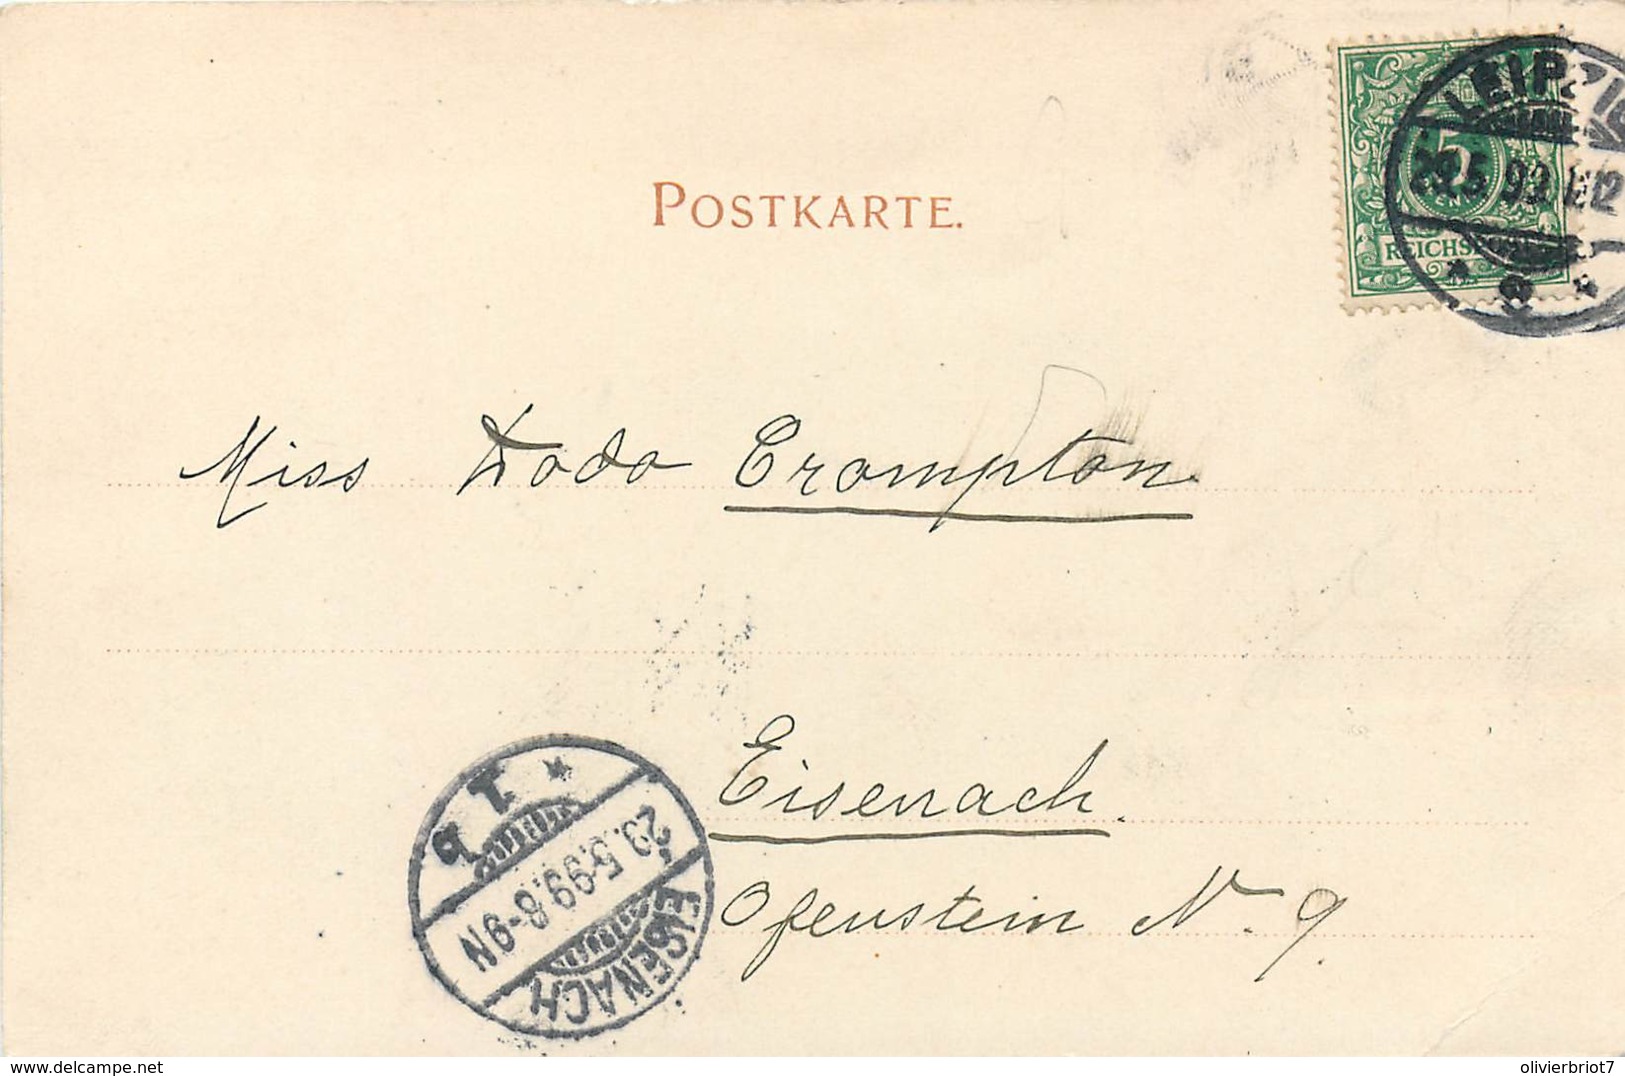 POSTKARTE.
LEIPZIG
5
REICHSPOST
9
Miss Dodo Crompton
Eisenach.
Ofenstein N. 9
EISENACH
29.5.99.8-9N
1 b
delcampe.net
olivierbriot7